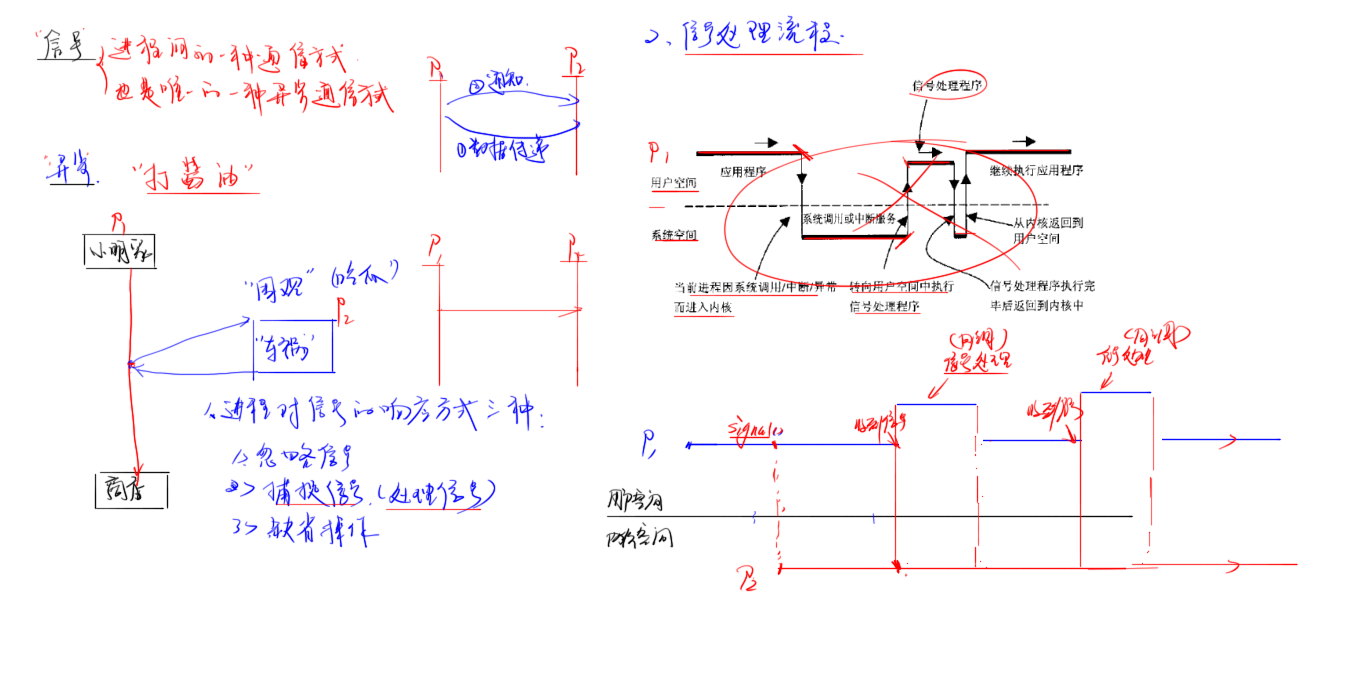 "信号"
进程间的一种通信方式
也是唯一的一种异步通信方式
P1
P2
②通知.
①数据传递
"异步"
"打酱油"
P1
小明家
"围观"
P2
"车祸"
商店
P1
P2
1、进程对信号的响应方式三种:
1>忽略信号
2>捕捉信号.(处理信号)
3>缺省操作
2、信号处理流程.
信号处理程序
P1
应用程序
继续执行应用程序
用户空间
系统调用或中断服务
系统空间
从内核返回到
用户空间
当前进程因系统调用/中断/异常
而进入内核
转向用户空间中执行
信号处理程序
信号处理程序执行完
毕后返回到内核中
(回调)
信号处理
(回调)
信号处理
P1
signal()
收到信号
收到信号
用户空间
内核空间
P2